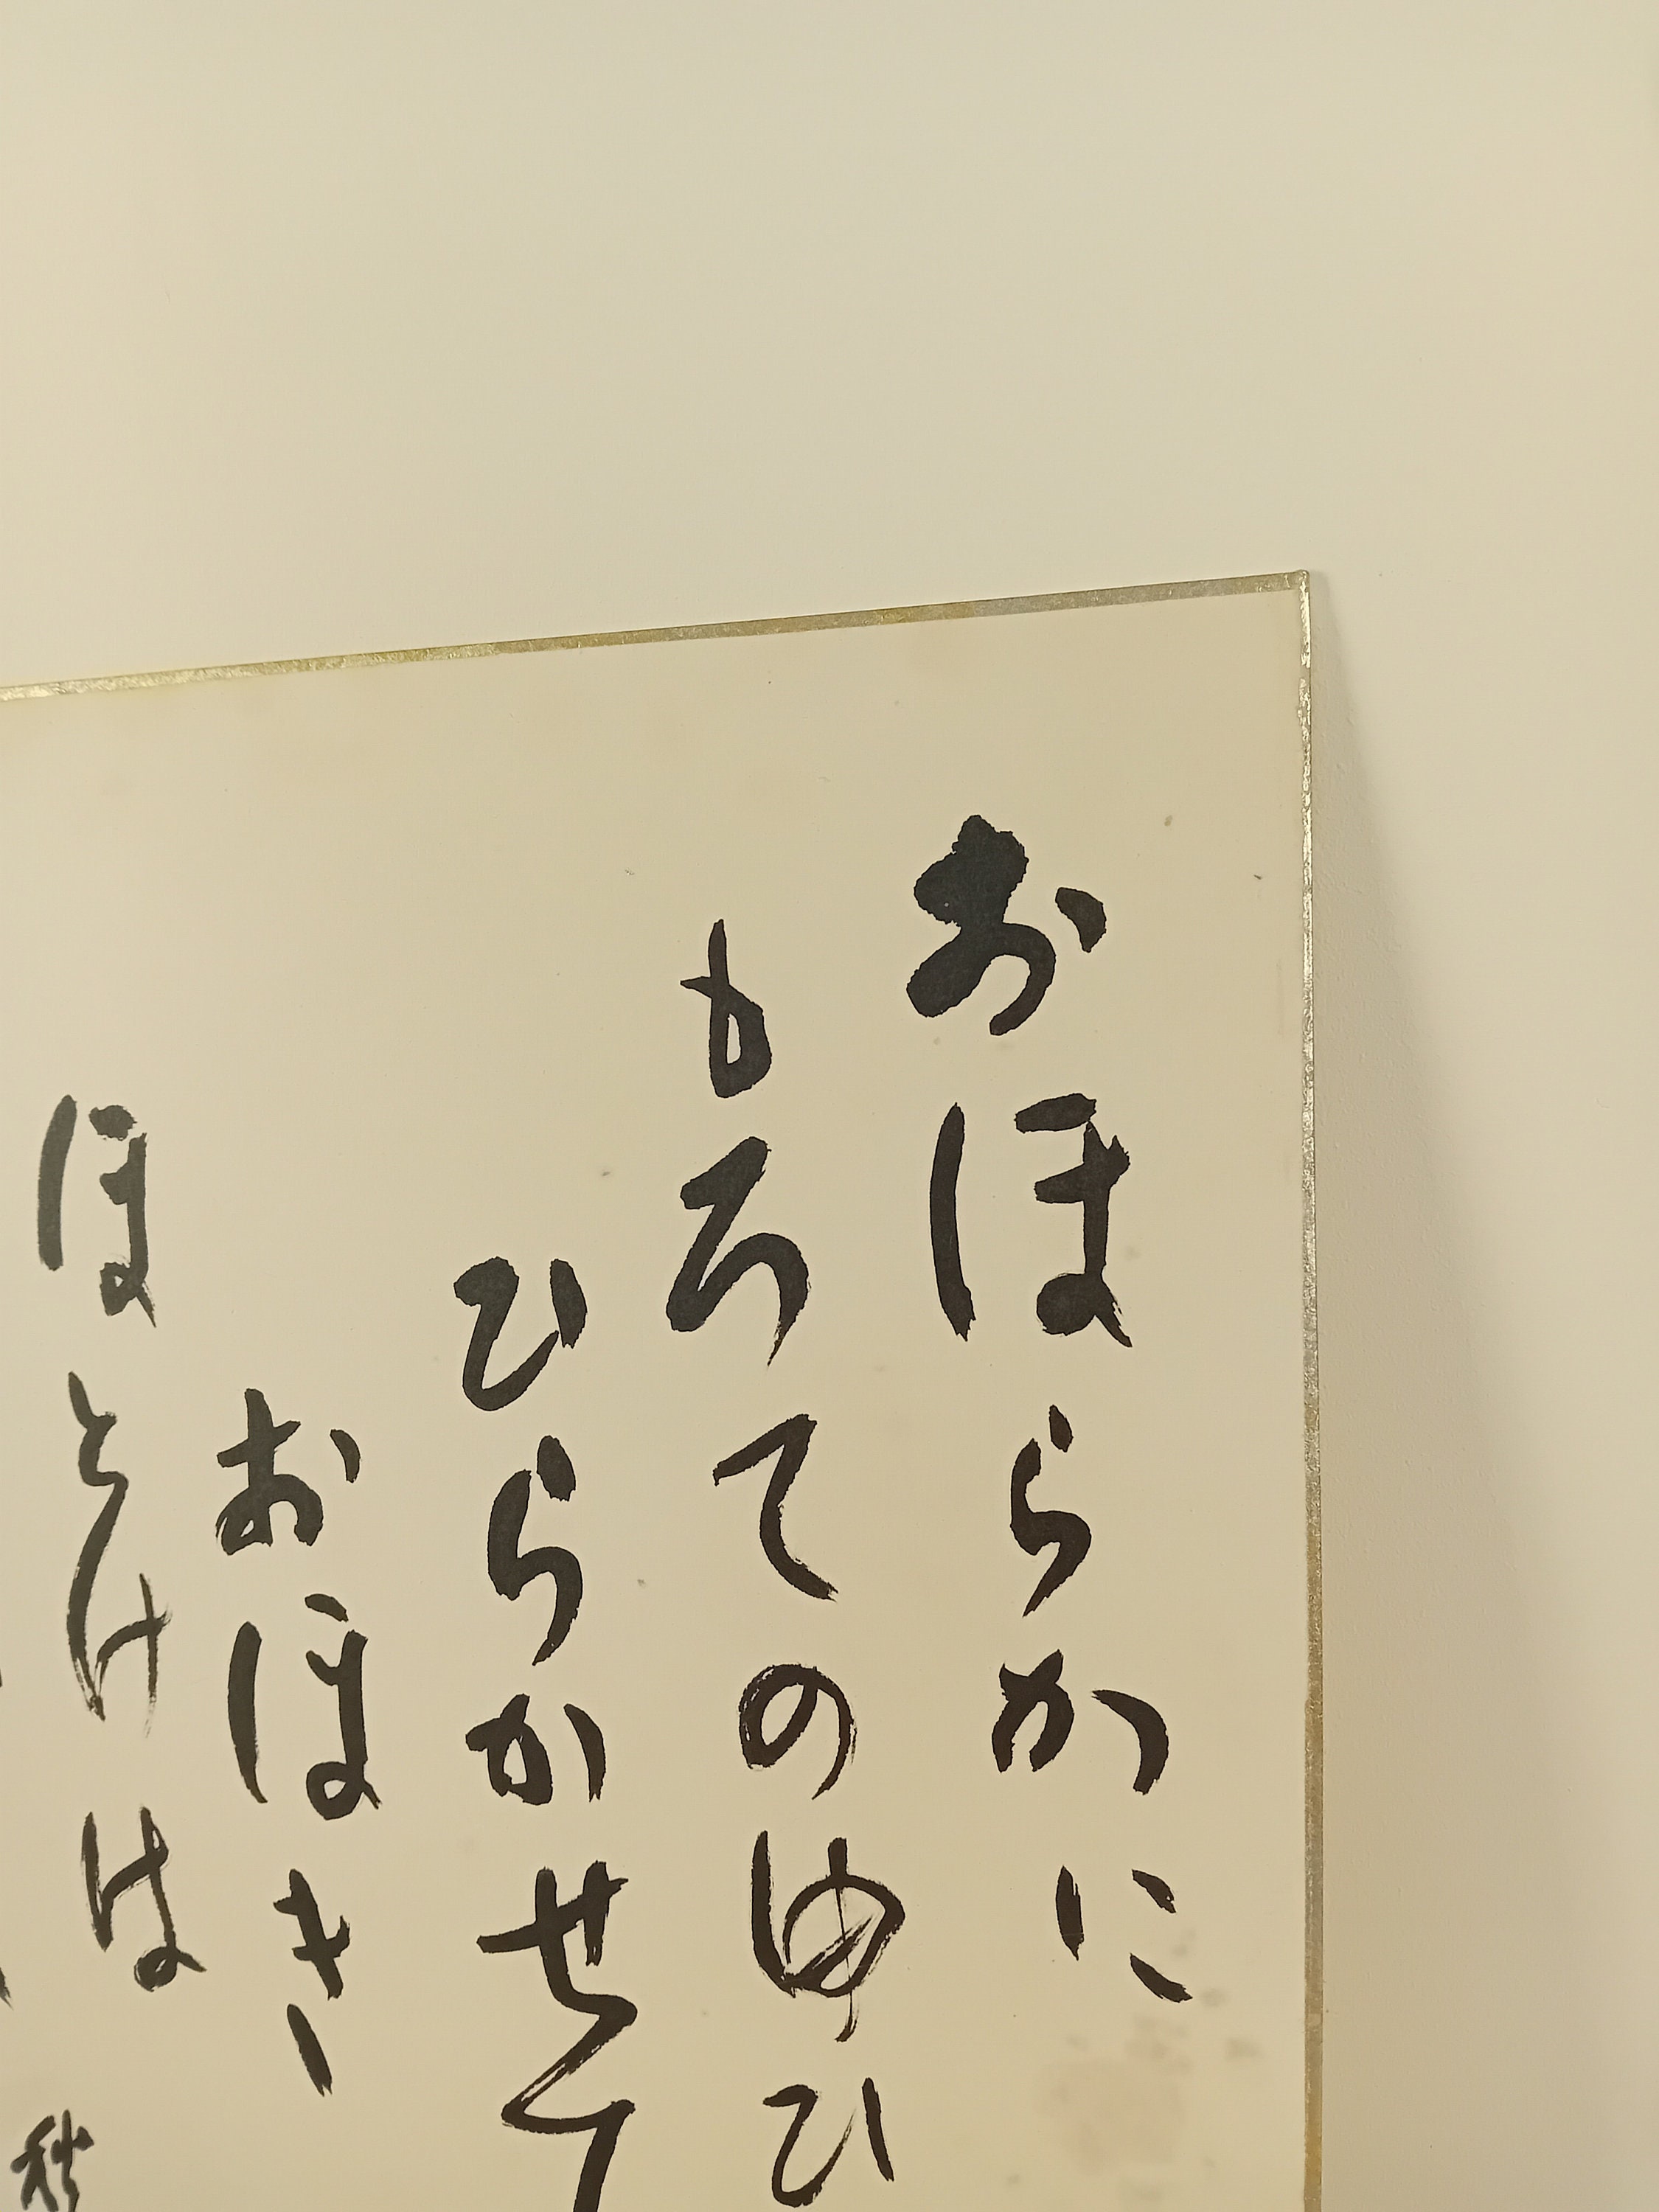 おほらかに
もろてのゆひ
ひらかせて
おほき
ほとけは
秋